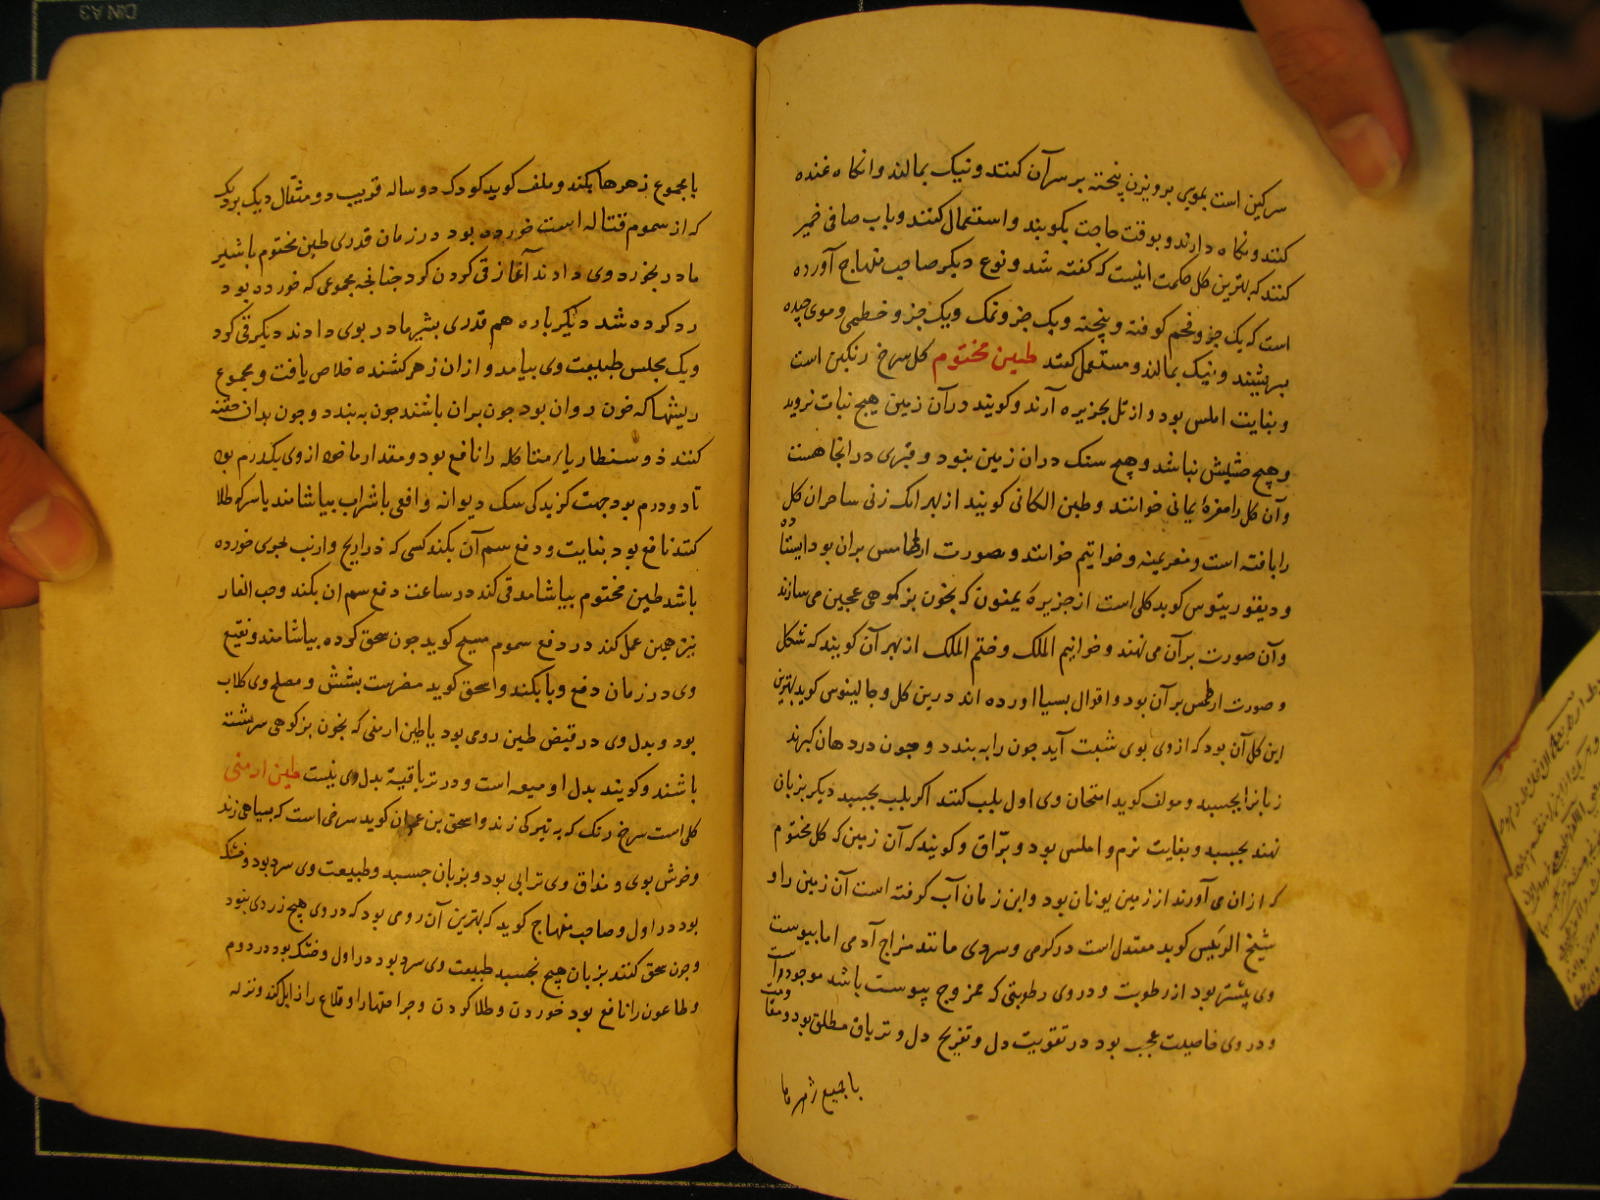 سرکین است بموی برویزن پخته بر سرآن کنند و نیک بمالند وانکاه غنده
کنند و نکاه دارند و بوقت حاجت بکوبند و استعمال کنند و باب صافی خمیر
کنند که بهترین کل حکمت اینست که کفته شد و نوع دیکر صاحب منهاج آورده
است که یک جزو فحم کوفته و پنچته و یک جزو نمک و یک جزو خطمی و موی چیده
بسریشند و نیک بمالند و مستعمل کنند طین مختوم کل سرخ رنکین است
و بغایت املس بود و از تل بجزیره آرند و کویند در آن زمین هیچ نبات نروید
و هیچ حشیش نباشد و هیچ سنک دران زمین نبود و قبری در انجا هست
و آن کل را مغرۀ یمانی خوانند و طین الکانی کویند از بهر انک زنی ساحران کل
را یافته است و مغریمنه و خواتیم خوانند و صورت ارطامس بران بود ایستاده
و دیقوریتوس کوید کلی است از جزیره یمنون که بخون بز کوهی عجین می سازند
و آن صورت بر آن می نهند و خواتیم الملک و ختم الملک از بهر آن کویند که شکل
و صورت ارطمس بر آن بود و اقوال بسیا اورده اند درین کل و جالینوس کوید بهترین
این کل آن بود که از وی بوی شبت آید خون را به بندد و چون در دهان کیرند
زبانرا بچسبد و مولف کوید امتحان وی اول بلب کنند اکر بلب بچسبد دیکر بزبان
نهند بچسبد و بغایت نرم و املس بود و براق و کویند که آن زمین که کل مختوم
که ازان می آورند از زمین یونان بود و این زمان آب کرفته است آن زمین را و
شیخ الرئیس کوید معتدل است در کرمی و سردی مانند مزاج آدمی اما یبوست
وی پیشتر بود از رطوبت و در وی رطوبتی که ممزوج یبوست باشد موجود است
و در وی خاصیت عجب بود در تقویت دل و تفریح دل و تریاق مطلق بود و مقاومت
با جمیع زهرها
با مجموع زهرها بکند و ملف کوید کودک دو ساله قریب دو مثقال دیک بردیک
که از سموم قتاله است خورده بود در زمان قدری طین مختوم با شیر
مادر بخورد وی دادند آغاز قی کردن کرد چنانچه مجموعی که خورده بود
رد کرده شد دیکر باره هم قدری بشیر مادر بوی دادند دیکر قی کرد
و یک مجلس طبیعت وی بیامد و ازان زهر کشنده خلاص یافت و مجموع
ریشها که خون روان بود چون بران باشند خون به بندد و چون بدان حقنه
کنند ذوسنطاریاء متاکله را نافع بود و مقدار ماخوذ از وی یکدرم بود
تا دو درم بود جهت کزیدکی سک دیوانه و افعی با شراب بیاشامند یا سرکه طلا
کنند نافع بود بغایت و دفع سم آن بکند کسی که ذراریح و ارنب بحری خورده
باشد طین مختوم بیاشامد قی کند در ساعت دفع سم ان بکند و حب الغار
نیز همین عمل کند در دفع سموم مسیح کوید چون سحق کرده بیاشامند و نقیع
وی در زمان دفع وبا بکند و اسحق کوید مضرست بشش و مصلح وی کلاب
بود و بدل وی در قبض طین رومی بود یا طین ارمنی که بخون بز کوهی سرشته
باشند و کویند بدل او میعه است و در تریاقیة بدل وی نیست طین ارمنی
کلی است سرخ رنک که به تیرکی زند و اسحق بن عمران کوید سرخی است که بسیاهی زند
و خوش بوی و مذاق وی ترابی بود و بزبان چسبد و طبیعت وی سرد بود و خشک
بود در اول و صاحب منهاج کوید که بهترین آن رومی بود که در وی هیچ زردی نبود
و چون سحق کنند بزبان هیچ نچسبد طبیعت وی سرد بود در اول و خشک بود در دوم
و طاعون را نافع بود خوردن و طلا کردن و جراحتها را و قلاع را زایل کند و نزله